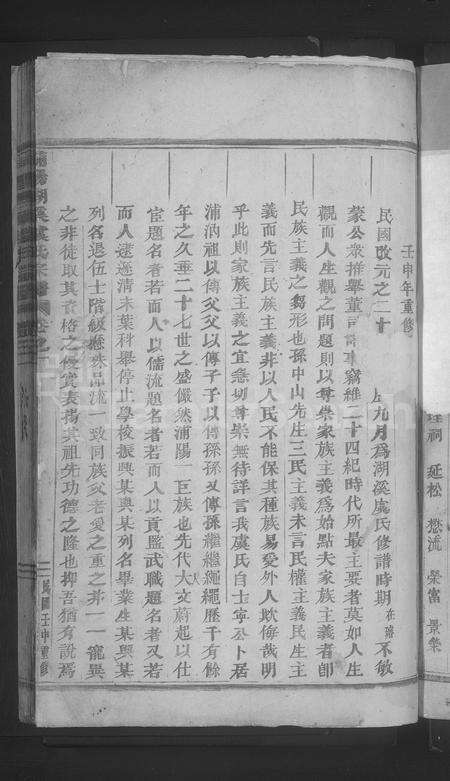 壬申年重修
民國改元之二十 九月為湖溪虞氏修譜時期在譜不敏
蒙公衆推舉董 竊維二十四紀時代所最主要者莫如人生
觀而人生觀之問題則以尊崇家族主義為始點夫家族主義者卽
民族主義之芻形也孫中山先生三民主義未言民權主義民生主
義而先言民族主義非以人民不能保其種族易受外人欺侮哉明
乎此則家族主義之宜急切尊崇無待詳言我虞氏自士寧公卜居
浦汭祖以傳父父以傳子子以傳孫孫又傳孫繼繼繩繩歷千有餘
年之久垂二十七世之盛儼然浦陽一巨族也先代大文蔚起以仕
宦題名者若而人以儒流題名者若而人以貢監武職題名者又若
而人逮遜清末葉科舉停止學校振興某與某列名畢業生某與某
列名退伍士階級懸殊品流一致同族父老愛之重之非一一寵異
之非徒取其資格之優實表揚其祖先功德之隆也抑吾猶有說焉
民國壬申重修
祠 延松 懋流 榮富 景榮